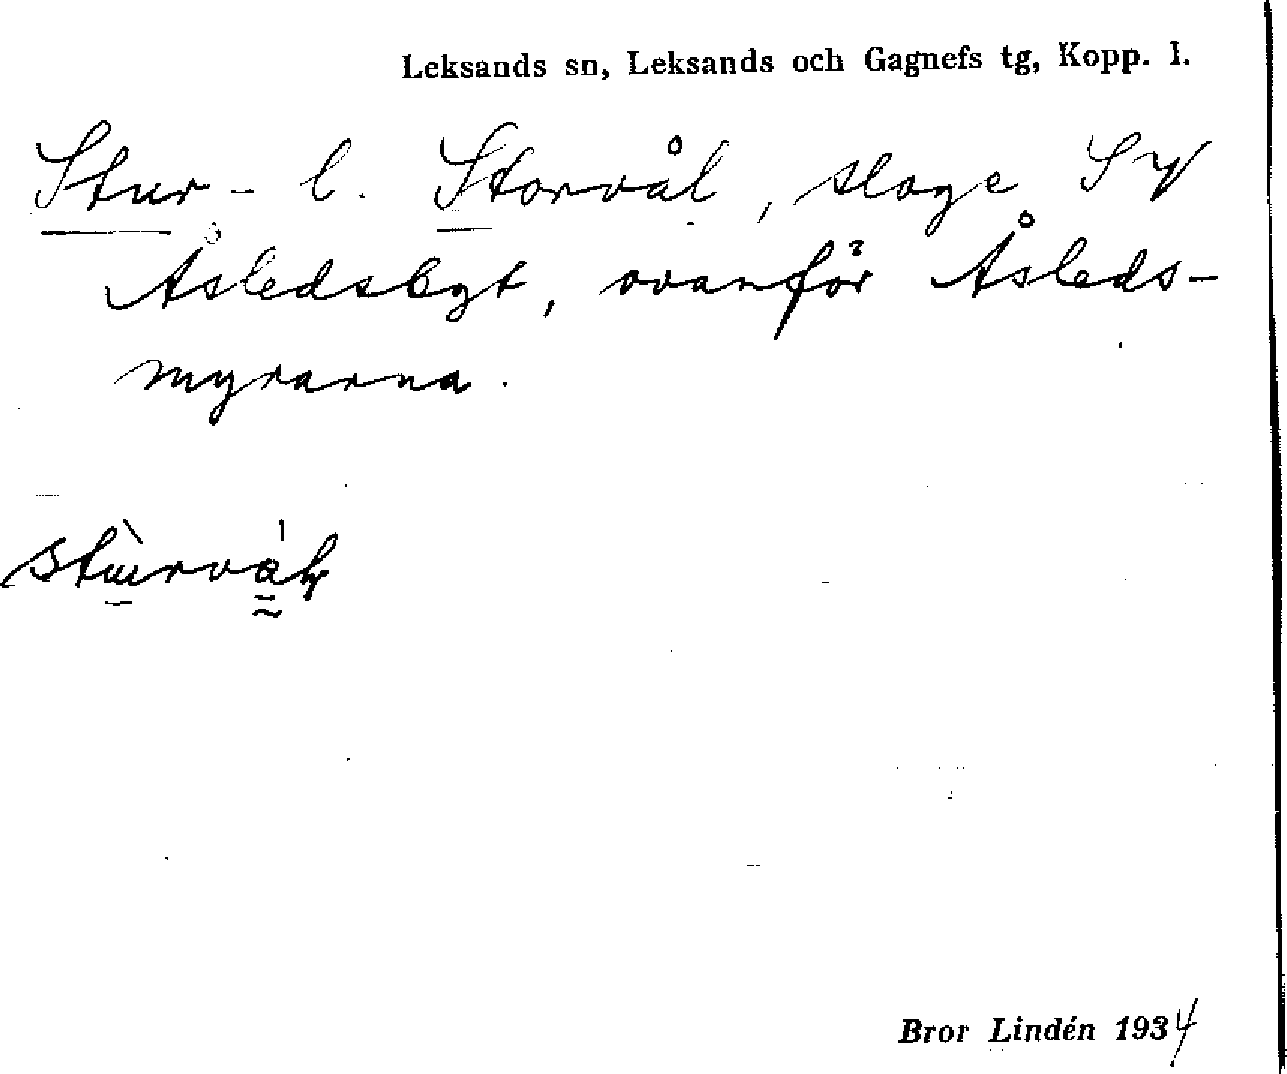 Leksands sn, Leksands och Gagnefs tg, Kopp. l.
Stur- l. Storvål, sloge SV
Åsledsbygt, ovanför Åsleds-
myrarna.
Bror Lindén 1934